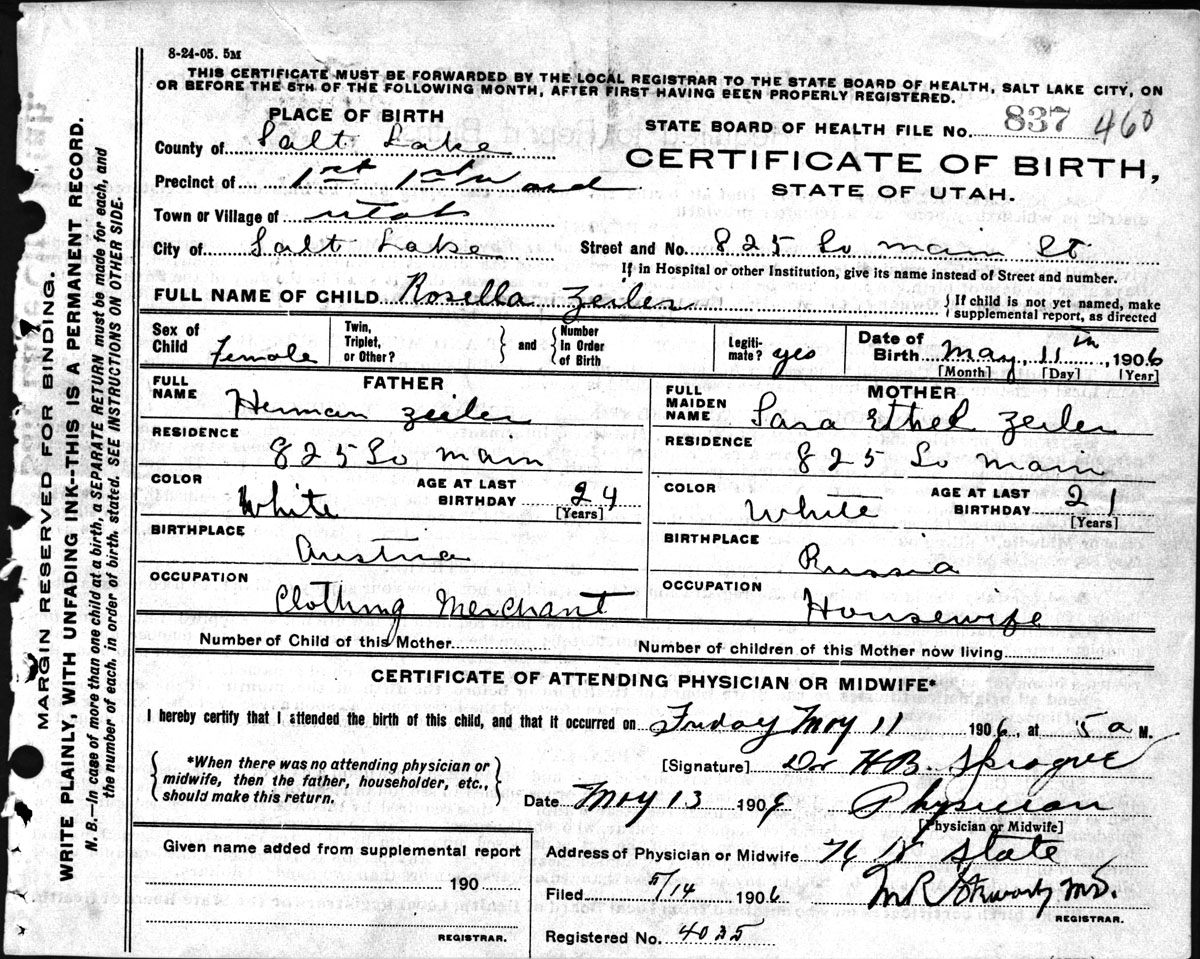 8-24-05. 5M
THIS CERTIFICATE MUST BE FORWARDED BY THE LOCAL REGISTRAR TO THE STATE BOARD OF HEALTH, SALT LAKE CITY, ON
OR BEFORE THE 5TH OF THE FOLLOWING MONTH, AFTER FIRST HAVING BEEN PROPERLY REGISTERED.
PLACE OF BIRTH
STATE BOARD OF HEALTH FILE NO. 837 460
County of Salt Lake
CERTIFICATE OF BIRTH,
Precinct of 1st 1st Ward
STATE OF UTAH.
Town or Village of Utah
City of Salt Lake Street and No. 825 So main St
If in Hospital or other Institution, give its name instead of Street and number.
FULL NAME OF CHILD Rosella Zeiler { If child is not yet named, make
supplemental report, as directed
Sex of Child Female
Twin, Triplet, or Other? } and { Number In Order of Birth
Legiti-mate? yes
Date of Birth May, 11th, 1906
[Month] [Day] [Year]
FATHER
FULL NAME Herman Zeiler
RESIDENCE
825 So main
COLOR White AGE AT LAST BIRTHDAY 24
[Years]
BIRTHPLACE
Austria
OCCUPATION
Clothing Merchant
MOTHER
FULL MAIDEN NAME Sara Ethel Zeiler
RESIDENCE
825 So main
COLOR White AGE AT LAST BIRTHDAY 21
[Years]
BIRTHPLACE
Russia
OCCUPATION
Housewife
Number of Child of this Mother Number of children of this Mother now living
CERTIFICATE OF ATTENDING PHYSICIAN OR MIDWIFE*
I hereby certify that I attended the birth of this child, and that it occurred on Friday May 11 1906, at 5 a M.
*When there was no attending physician or
midwife, then the father, householder, etc.,
should make this return.
[Signature] Dr HB. Sprague
Date May 13 1906 Physician
[Physician or Midwife]
Given name added from supplemental report
190
REGISTRAR.
Address of Physician or Midwife State
Filed 5/14 1906 M.D.
REGISTRAR.
Registered No. 4035
MARGIN RESERVED FOR BINDING.
WRITE PLAINLY, WITH UNFADING INK--THIS IS A PERMANENT RECORD.
N. B.--In case of more than one child at a birth, a SEPARATE RETURN must be made for each, and
the number of each, in order of birth, stated. SEE INSTRUCTIONS ON OTHER SIDE.